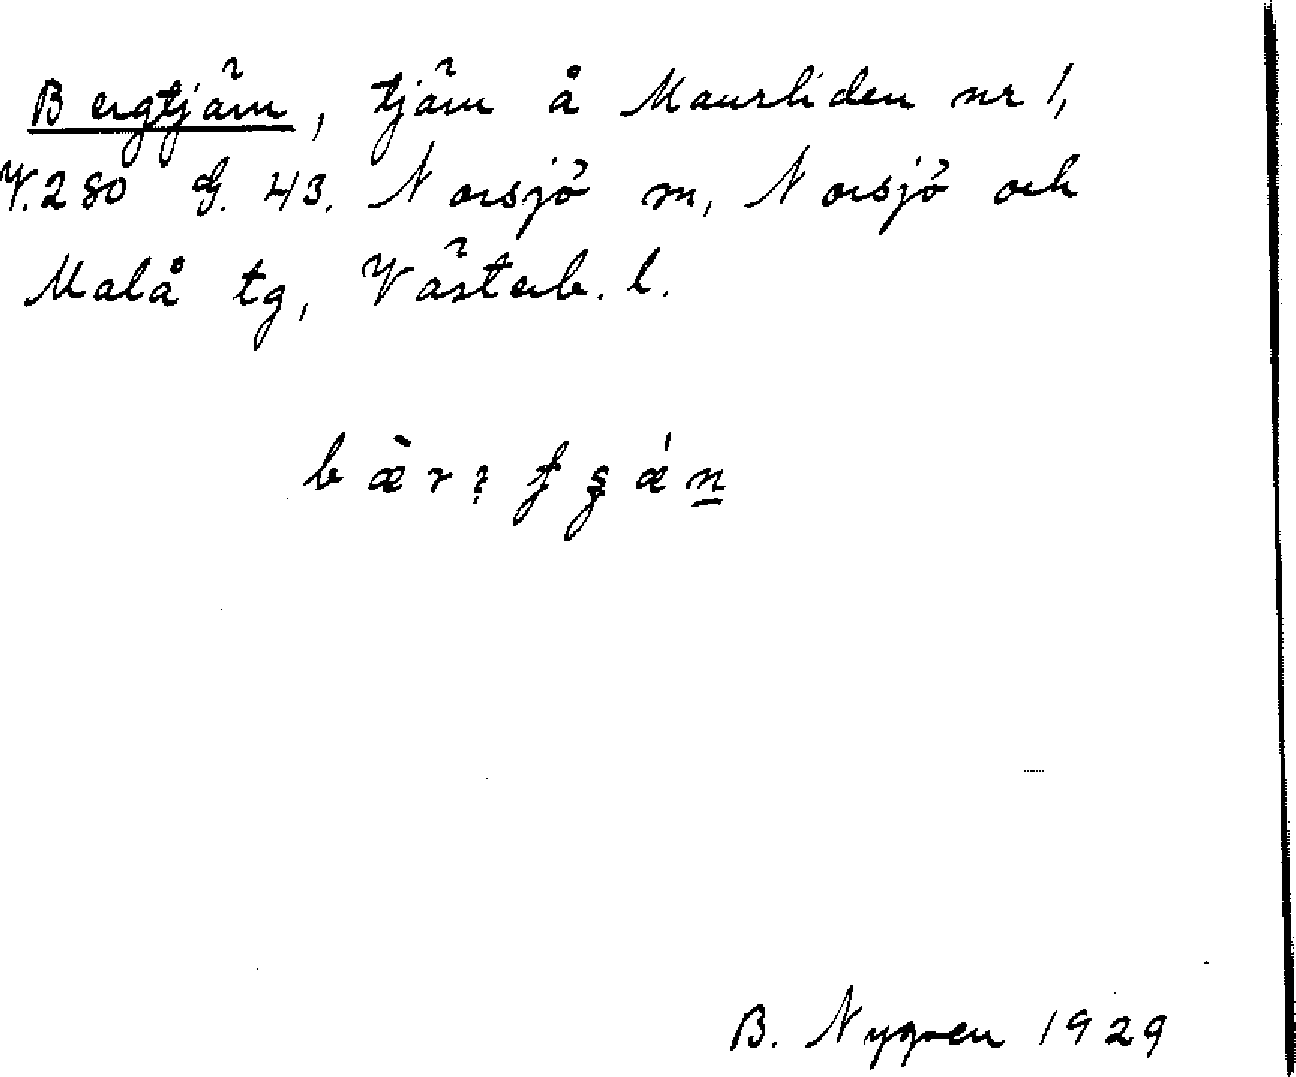 Bergtjärn, tjärn å Maurliden nr 1,
V.280 G. 43. Norsjö sn, Norsjö och
Malå tg, Västerb. l.
B. Nygren 1929